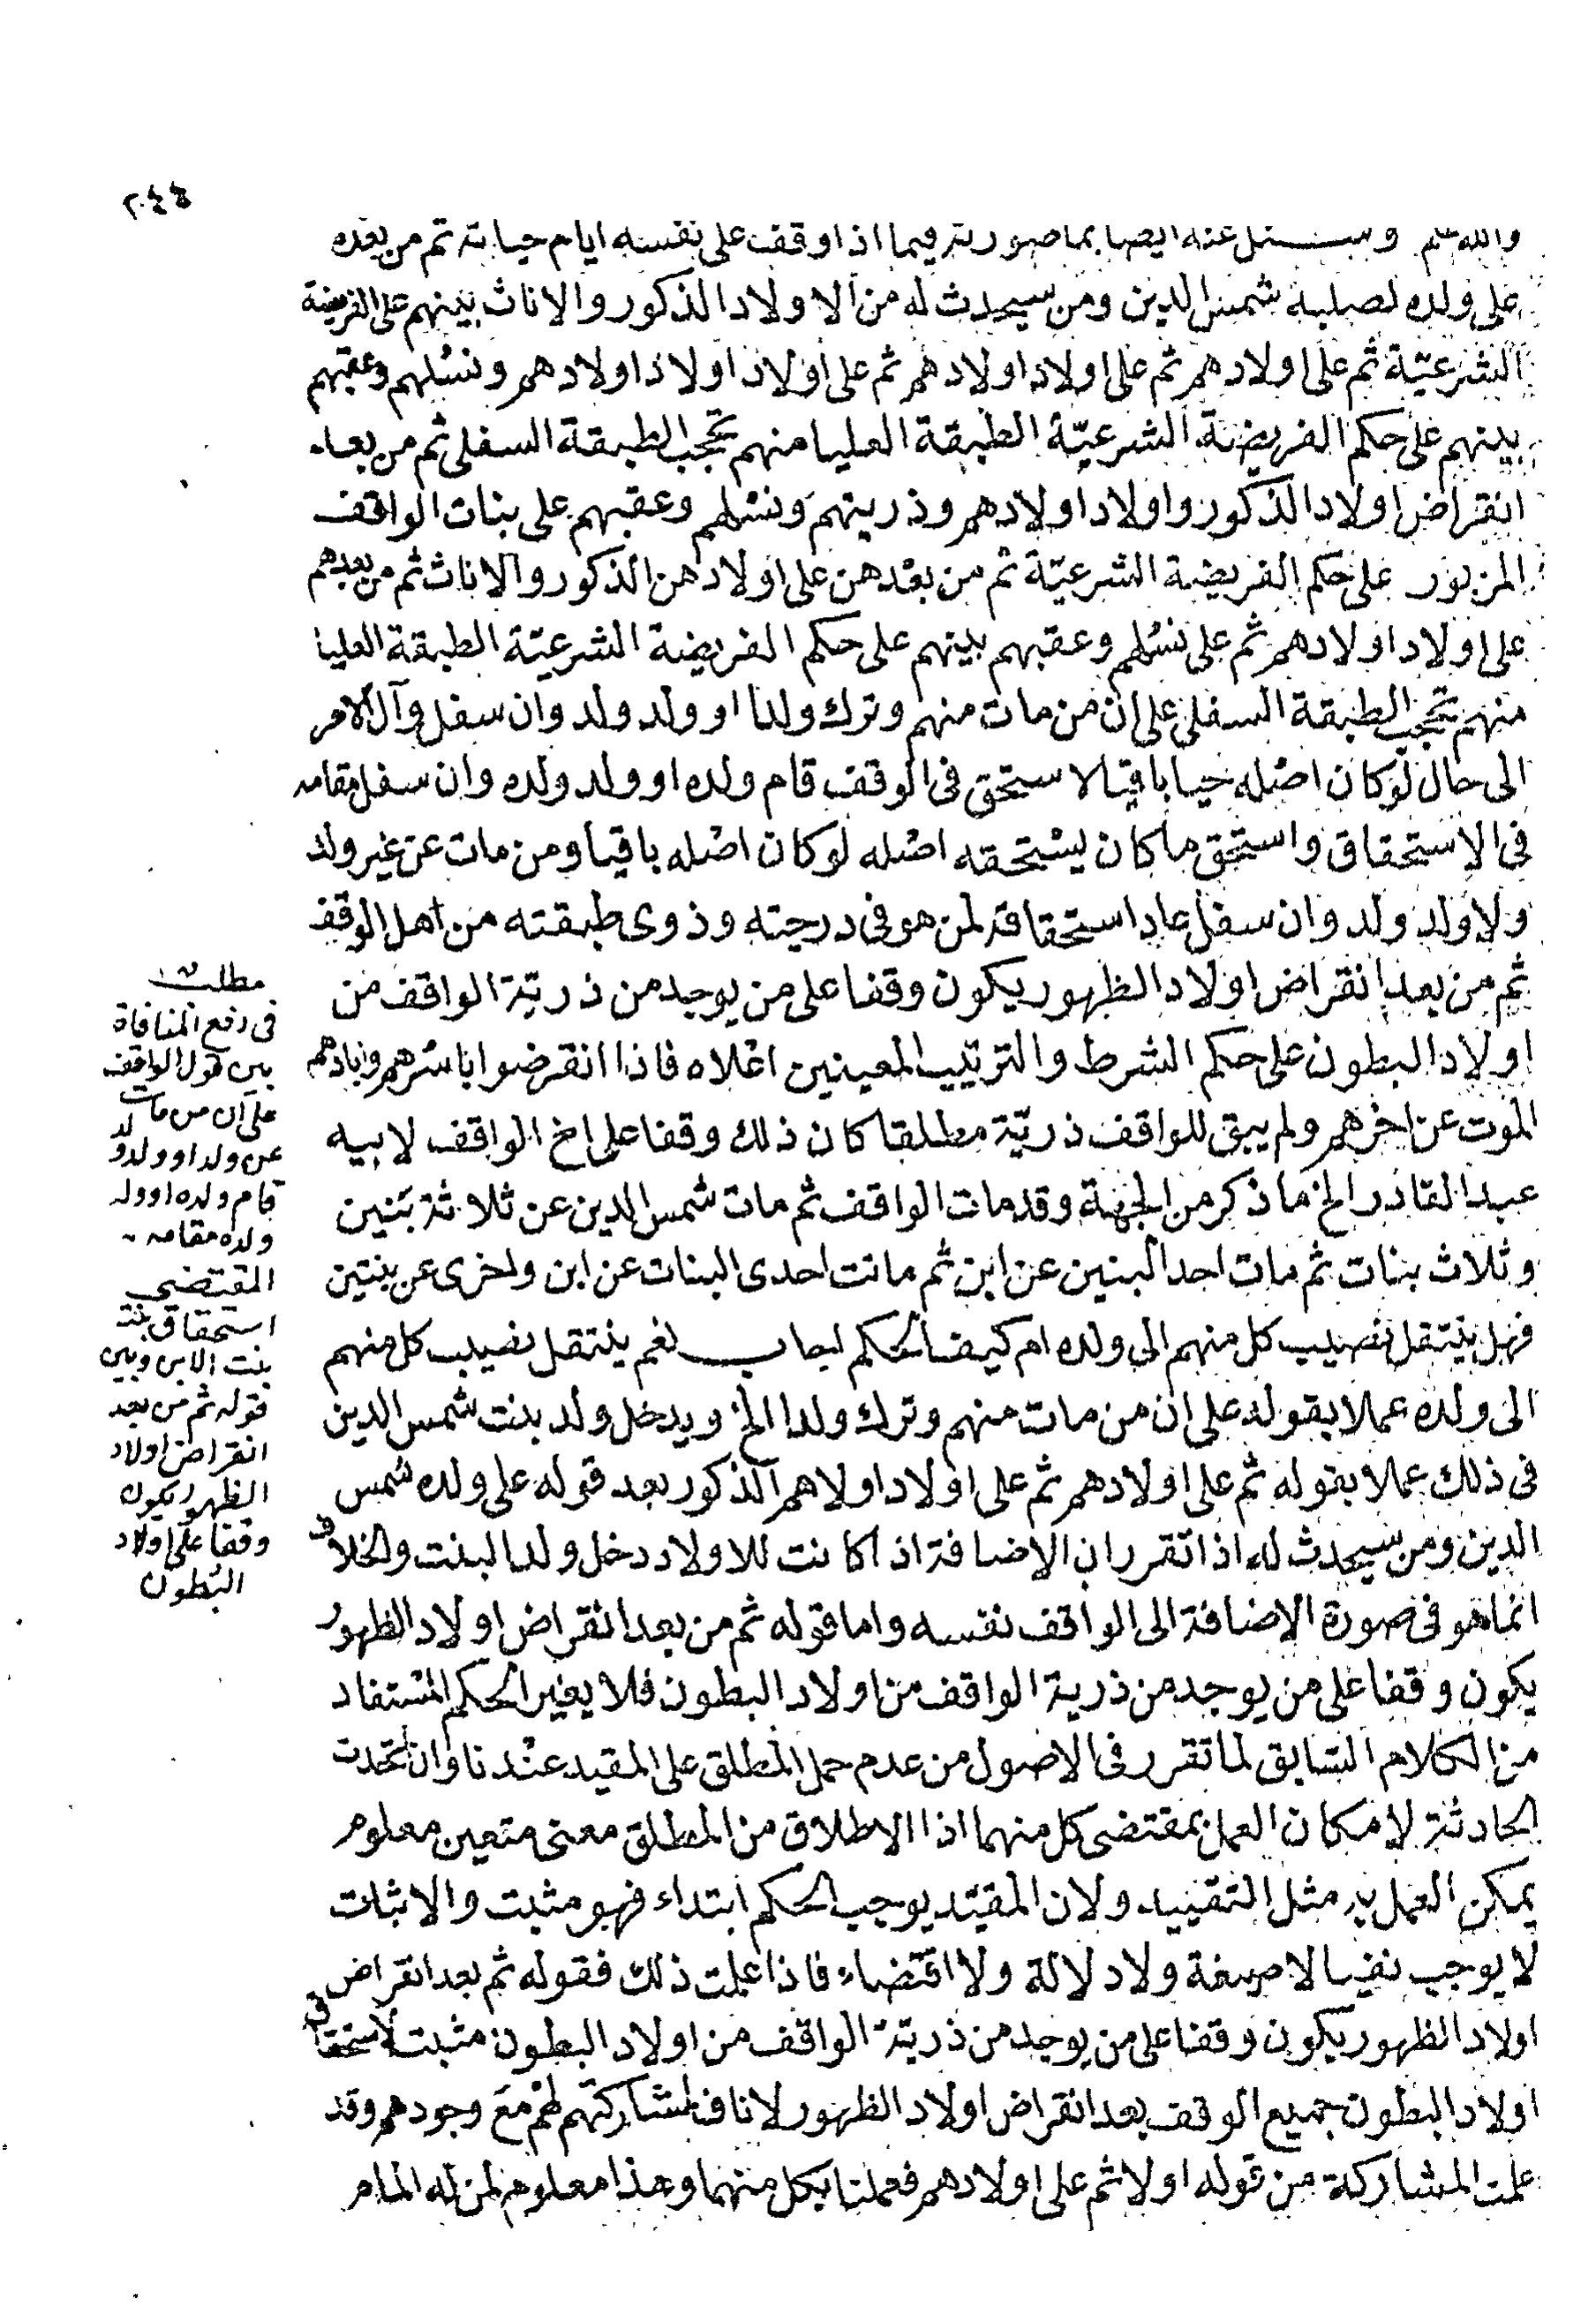 والله اعلم وسئل عنه ايضا بما صورته فيما اذا وقف على نفسه ايام حياته ثم من بعده
على ولده لصلبه شمس الدين ومن سيحدث له من الاولاد الذكور والاناث بينهم على الفريضة
الشرعيّة ثم على اولادهم ثم على اولاد اولادهم ثم على اولاد اولاد اولادهم ونسلهم وعقبهم
بينهم على حكم الفريضة الشرعيّة الطبقة العليا منهم تحجب الطبقة السفلى ثم من بعد
انقراض اولاد الذكور واولاد اولادهم وذريتهم ونسلهم وعقبهم على بنات الواقف
المزبور على حكم الفريضة الشرعيّة ثم من بعدهن على اولادهن الذكور والاناث ثم من بعدهم
على اولاد اولادهم ثم على نسلهم وعقبهم بينهم على حكم الفريضة الشرعيّة الطبقة العليا
منهم تحجب الطبقة السفلى على ان من مات منهم وترك ولدا او ولد ولد وان سفل وآل الامر
الى حال لو كان اصله حيا باقيا لاستحق فى الوقف قام ولده او ولد ولده وان سفل مقامه
فى الاستحقاق واستحق ما كان يستحقه اصله لو كان اصله باقيا ومن مات عن غير ولد
ولا ولد ولد وان سفل عاد استحقاقه لمن هو فى درجته وذوى طبقته من اهل الوقف
ثم من بعد انقراض اولاد الظهور يكون وقفا على من يوجد من ذريّة الواقف من
اولاد البطون على حكم الشرط والترتيب المعينين اعلاه فاذا انقرضوا باسرهم وابادهم
الموت عن اخرهم ولم يبق للواقف ذريّة مطلقا كان ذلك وقفا على اخ الواقف لابيه
عبد القادر الخ ما ذكر من الجهة وقد مات الواقف ثم مات شمس الدين عن ثلاثة بنين
وثلاث بنات ثم مات احد البنين عن ابن ثم ماتت احدى البنات عن ابن واخرى عن بنتين
فهل ينتقل نصيب كل منهم الى ولده ام كيف الحكم اجاب نعم ينتقل نصيب كل منهم
الى ولده عملا بقوله على ان من مات منهم وترك ولدا الخ ويدخل ولد بنت شمس الدين
فى ذلك عملا بقوله ثم على اولادهم ثم على اولاد اولاهم الذكور بعد قوله على ولده شمس
الدين ومن سيحدث له اذا تقرر ان الاضافة اذا كانت للاولاد دخل ولد البنت والخلاف
انما هو فى صورة الاضافة الى الواقف نفسه واما قوله ثم من بعد انقراض اولاد الظهور
يكون وقفا على من يوجد من ذرية الواقف من اولاد البطون فلا يغير الحكم المستفاد
من الكلام السابق لما تقرر فى الاصول من عدم حمل المطلق على المقيد عندنا وان اتحدت
الحادثة لامكان العمل بمقتضى كل منهما اذا الاطلاق من المطلق معنى متعين معلوم
يمكن العمل به مثل التقييد ولان المقيّد يوجب الحكم ابتداء فهو مثبت والاثبات
لا يوجب نفيا لا صيغة ولا دلالة ولا اقتضاء فاذا علمت ذلك فقوله ثم بعد انقراض
اولاد الظهور يكون وقفا على من يوجد من ذريّة الواقف من اولاد البطون مثبت لاستحقاق
اولاد البطون جميع الوقف بعد انقراض اولاد الظهور لا ناف لمشاركتهم لهم مع وجودهم وقد
علمت المشاركة من قوله اولا ثم على اولادهم فعملنا بكل منهما وهذا معلوم لمن له المام
مطلب
فى دفع المنافاة
بين قول الواقف
على ان من مات
عن ولد او ولد ولد
قام ولده او ولد
ولده مقامه
المقتضى
استحقاق بنت
بنت الابن وبين
قوله ثم من بعد
انقراض اولاد
الظهور يكون
وقفا على اولاد
البطون